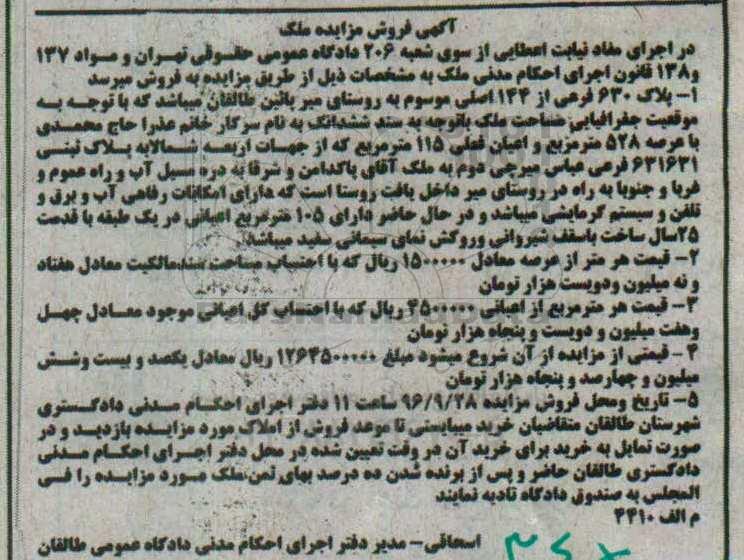 آگهی فروش مزایده ملک
در اجرای مفاد نیابت اعطایی از سوی شعبه ۲۰۶ دادگاه عمومی حقوقی تهران و مواد ۱۳۷
و۱۳۸ قانون اجرای احکام مدنی ملک به مشخصات ذیل از طریق مزایده به فروش میرسد
۱- پلاک ۶۳۰ فرعی از ۱۴۴ اصلی موسوم به روستای میر پائین طالقان میباشد که با توجه به
موقعیت جغرافیایی مساحت ملک باتوجه به سند ششدانگ به نام سرکار خانم عذرا حاج محمدی
با عرصه ۵۲۸ مترمربع و اعیان فعلی ۱۱۵ مترمربع که از جهات اربعه شمالابه پلاک ثبتی
۶۳۱۶۳۱ فرعی عباس میرچی دوم به ملک آقای پاکدامن و شرقا به دره مسیل آب و راه عموم و
غربا و جنوبا به راه در روستای میر داخل بافت روستا است که دارای امکانات رفاهی آب و برق و
تلفن و سیستم گرمایشی میباشد و در حال حاضر دارای ۱۰۵ مترمربع اعیانی در یک طبقه با قدمت
۲۵سال ساخت باسقف شیروانی وروکش نمای سیمانی سفید میباشد
۲- قیمت هر متر از عرصه معادل ۱۵۰۰۰۰۰ ریال که با احتساب مساحت سندمالکیت معادل هفتاد
و نه میلیون ودویست هزار تومان
۳- قیمت هر مترمربع از اعیانی ۴۵۰۰۰۰۰ ریال که با احتساب کل اعیانی موجود معادل چهل
وهفت میلیون و دویست و پنجاه هزار تومان
۴- قیمتی از مزایده از آن شروع میشود مبلغ ۱۲۶۴۵۰۰۰۰۰ ریال معادل یکصد و بیست وشش
میلیون و چهارصد و پنجاه هزار تومان
۵- تاریخ ومحل فروش مزایده ۹۶/۹/۲۸ ساعت ۱۱ دفتر اجرای احکام مدنی دادگستری
شهرستان طالقان متقاضیان خرید میبایستی تا موعد فروش از املاک مورد مزایده بازدید و در
صورت تمایل به خرید برای خرید آن در وقت تعیین شده در محل دفتر اجرای احکام مدنی
دادگستری طالقان حاضر و پس از برنده شدن ده درصد بهای ثمن ملک مورد مزایده را فی
المجلس به صندوق دادگاه تادیه نمایند
م الف ۴۴۱۰
اسحاقی- مدیر دفتر اجرای احکام مدنی دادگاه عمومی طالقان